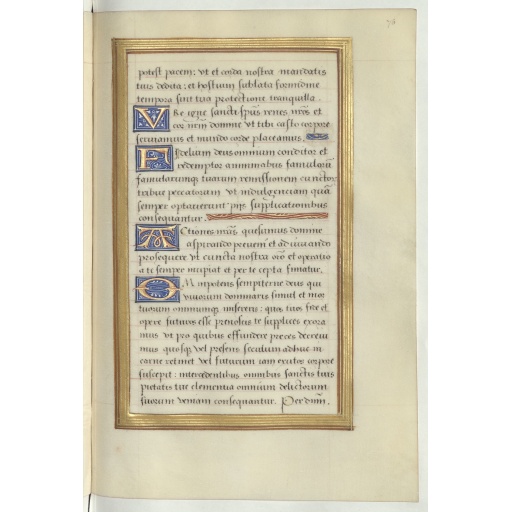 potest pacem: vt et corda nostra mandatis
tuis dedita: et hostium sublata formidine
tempora sint tua protectione tranquilla.
Vre igne sancti spūs renes nr̄os et
cor nr̄m domine vt tibi casto corpore
seruiamus et mundo corde placeamus.
Fidelium deus omnium conditor et
redemptor animabus famulorū
famularumq tuarum remissionem cunctor
tribue peccatorum vt indulgenciam quā
semper optauerunt pijs supplicationibus
consequantur.
Actiones nr̄as quesumus domine
aspirando preueni et adiuuando
prosequere vt cuncta nostra orō et operatio
a te semper incipiat et per te cepta finiatur.
Omnipotens sempiterne deus qui
viuorum dominaris simul et mor
tuorum omniumq misereris: quos tuos fide et
opere futuros esse prenoscis te supplices exora
mus vt pro quibus effundere preces decreui
mus quosq vel presens seculum adhuc in
carne retinet vel futurum iam exutos corpore
suscepit: intercedentibus omnibus sanctis tuis
pietatis tue clementia omnium delictorum
suorum veniam consequantur. Per dnm̄.